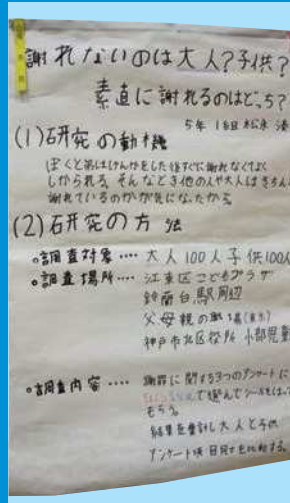 謝れないのは大人?子供?
素直に謝れるのはどっち?
5年 1組 松永
(1)研究の動機
ぼくと弟はけんかをした後すぐに謝れなくてよく
しかられる。そんなとき他の人や大人はきちんと
謝れているのかが気になったから
(2)研究の方法
○調査対象‥‥大人100人子供100人
○調査場所‥‥江東区こどもプラザ
鈴蘭台駅周辺
父母親の職場(東京)
神戸市北区役所 小部児童
○調査内容‥‥謝罪に関する3つのアンケートに
で選んでシールをはって
もらう。
結果を集計し大人と子供
アンケート項目同士を比較する。